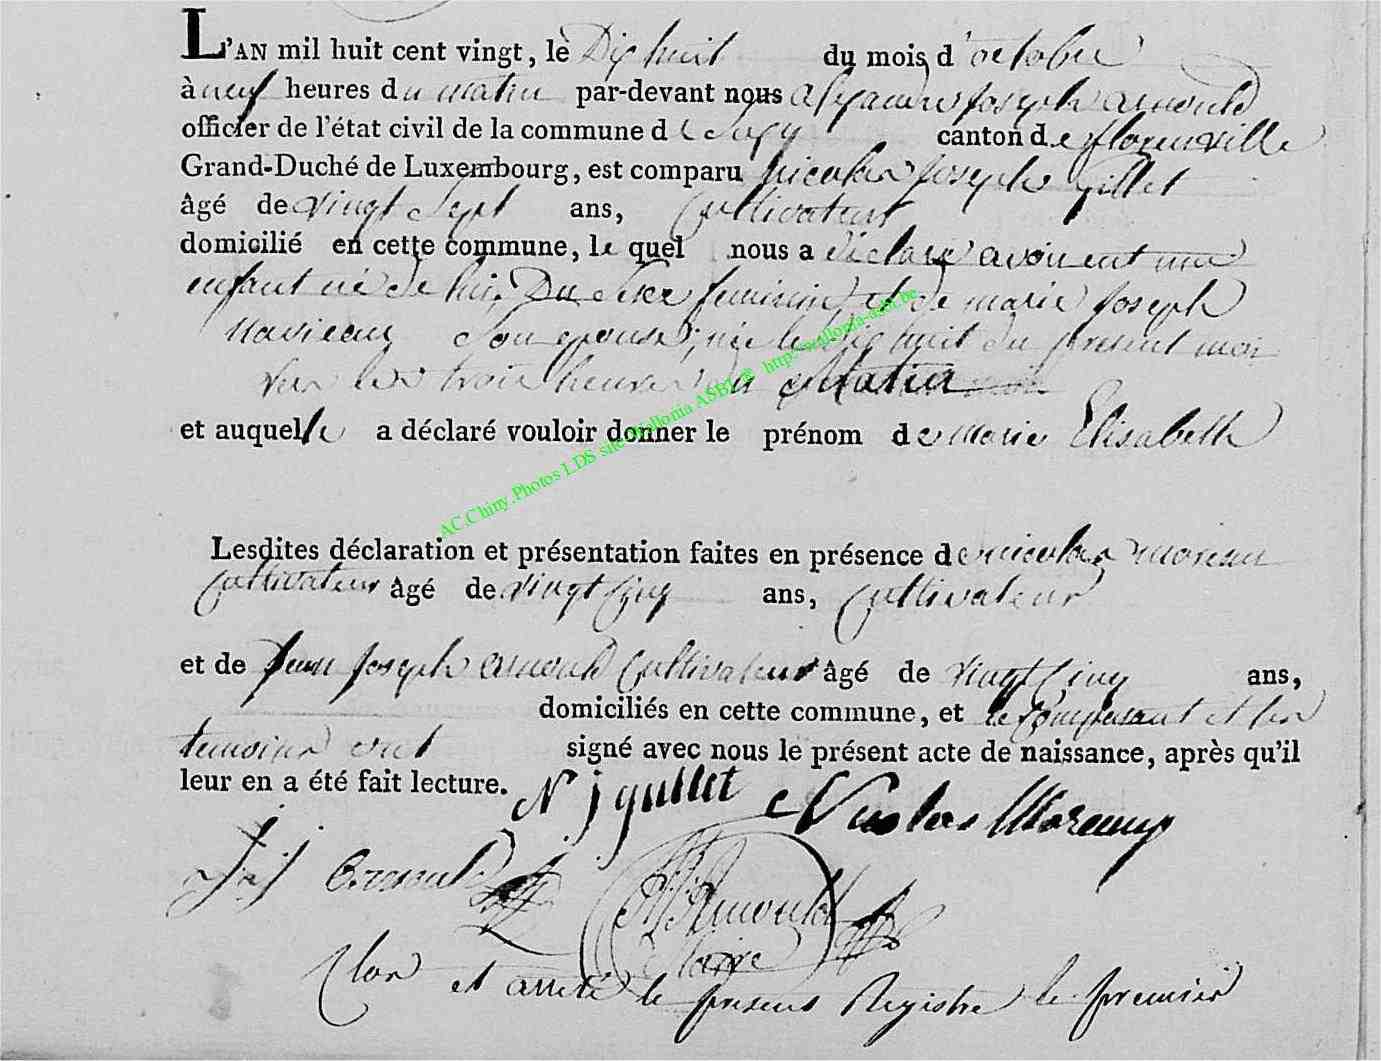 L'AN mil huit cent vingt, le Dix huit du mois d'octobre
à neuf heures du matin par-devant nous alexandre joseph arnould
officier de l'état civil de la commune de canton de florenville
Grand-Duché de Luxembourg, est comparu nicolas joseph gillet
âgé de vingt Sept ans, Cultivateur
domicilié en cette commune, le quel nous a déclaré avoir eut un
enfant né de lui, Du Sexe feminin, et de marie joseph
Son epouse, née le dix huit du present moi
vers les trois heures du Matin
et auquelle a déclaré vouloir donner le prénom de marie Elisabeth
AC.Chiny.Photos LDS site wallonia ASBL® http:
Lesdites déclaration et présentation faites en présence de nicolas moreau
Cultivateur âgé de vingt Cinq ans, Cultivateur
et de jean joseph arnould Cultivateur âgé de vingt Cinq ans,
domiciliés en cette commune, et le Comparant et les
temoins ont signé avec nous le présent acte de naissance, après qu'il
leur en a été fait lecture. N j gillet Nicolas Moreau
j j arnould Arnould
Maire
Clos et arreté le present Registre le premier